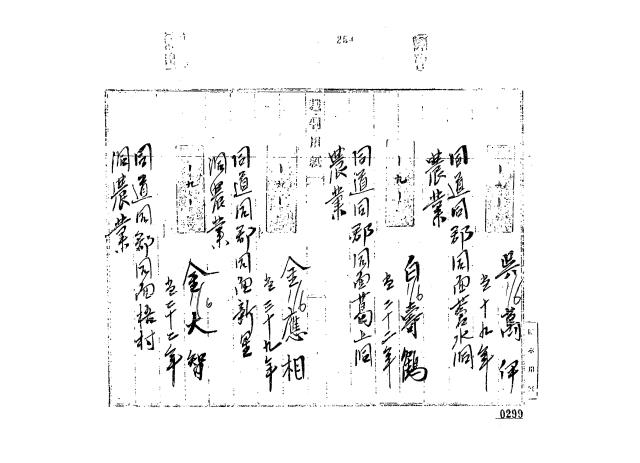 284
吳萬伊
16
当十九年
同道同郡同面水洞
農業
一九一
白壽鶴
16
当二十二年
同道同郡同面葛上洞
農業
金應相
16
当三十九年
同道同郡同面新里
洞農業
一九一
金大智
16
当二十二年
同道同郡同面梧村
洞農業
0299